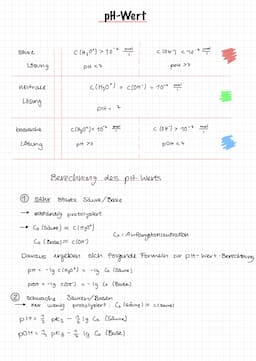 pH-Wert
saure Lösung
c(H₃O⁺) > 10⁻⁷ mol/l
c(OH⁻) < 10⁻⁷ mol/l
pH < 7
pOH > 7
neutrale Lösung
c(H₃O⁺) = c(OH⁻) = 10⁻⁷ mol/l
pH = 7
basische Lösung
c(H₃O⁺) < 10⁻⁷ mol/l
c(OH⁻) > 10⁻⁷ mol/l
pH > 7
pOH < 7
Berechnung des pH-Werts
① Sehr starke Säure/Base
→ vollständig protolysiert
→ C₀ (Säure) = C(H₃O⁺)
C₀ (Base) = C(OH⁻)
C₀ = Anfangskonzentration
Daraus ergeben sich folgende Formeln zur pH-Wert-Berechnung
pH = -lg c(H₃O⁺) = -lg C₀ (Säure)
pOH = -lg c(OH⁻) = -lg C₀ (Base)
② Schwache Säuren/Basen
→ nur wenig protolysiert: C₀ (Säure) = c(Säure)
pH = ½ pKs - ½ lg C₀ (Säure)